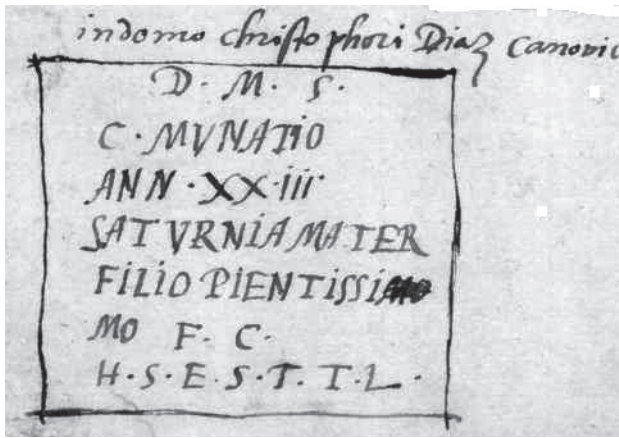 in domo christophori Diaz Canonic
D. M. S.
C. MVNATIO
ANN. XX.iii
SATVRNIA MATER
FILIO PIENTISSI
MO F. C.
H.S.E.S.T.T.L.